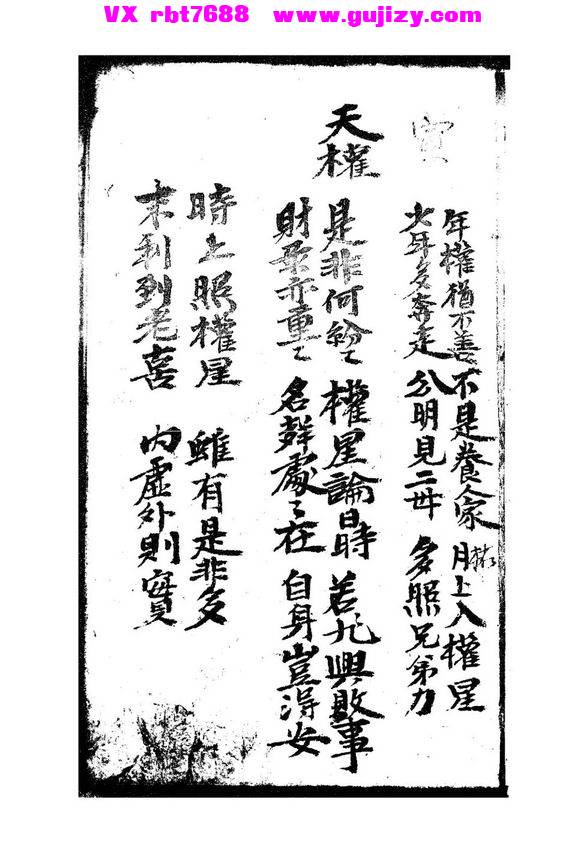 VX rbt7688 www.gujizy.com
年權猶不善 不是養家 月上入權星
少年多奔走 分明見二毋 多照兄弟力
天權
是非何紛〻 權星論日時 若凡興敗事
財帛亦重〻 名聲處〻在 自身豈得安
時上照權星 雖有是非多
末利到老喜 內虛外則實